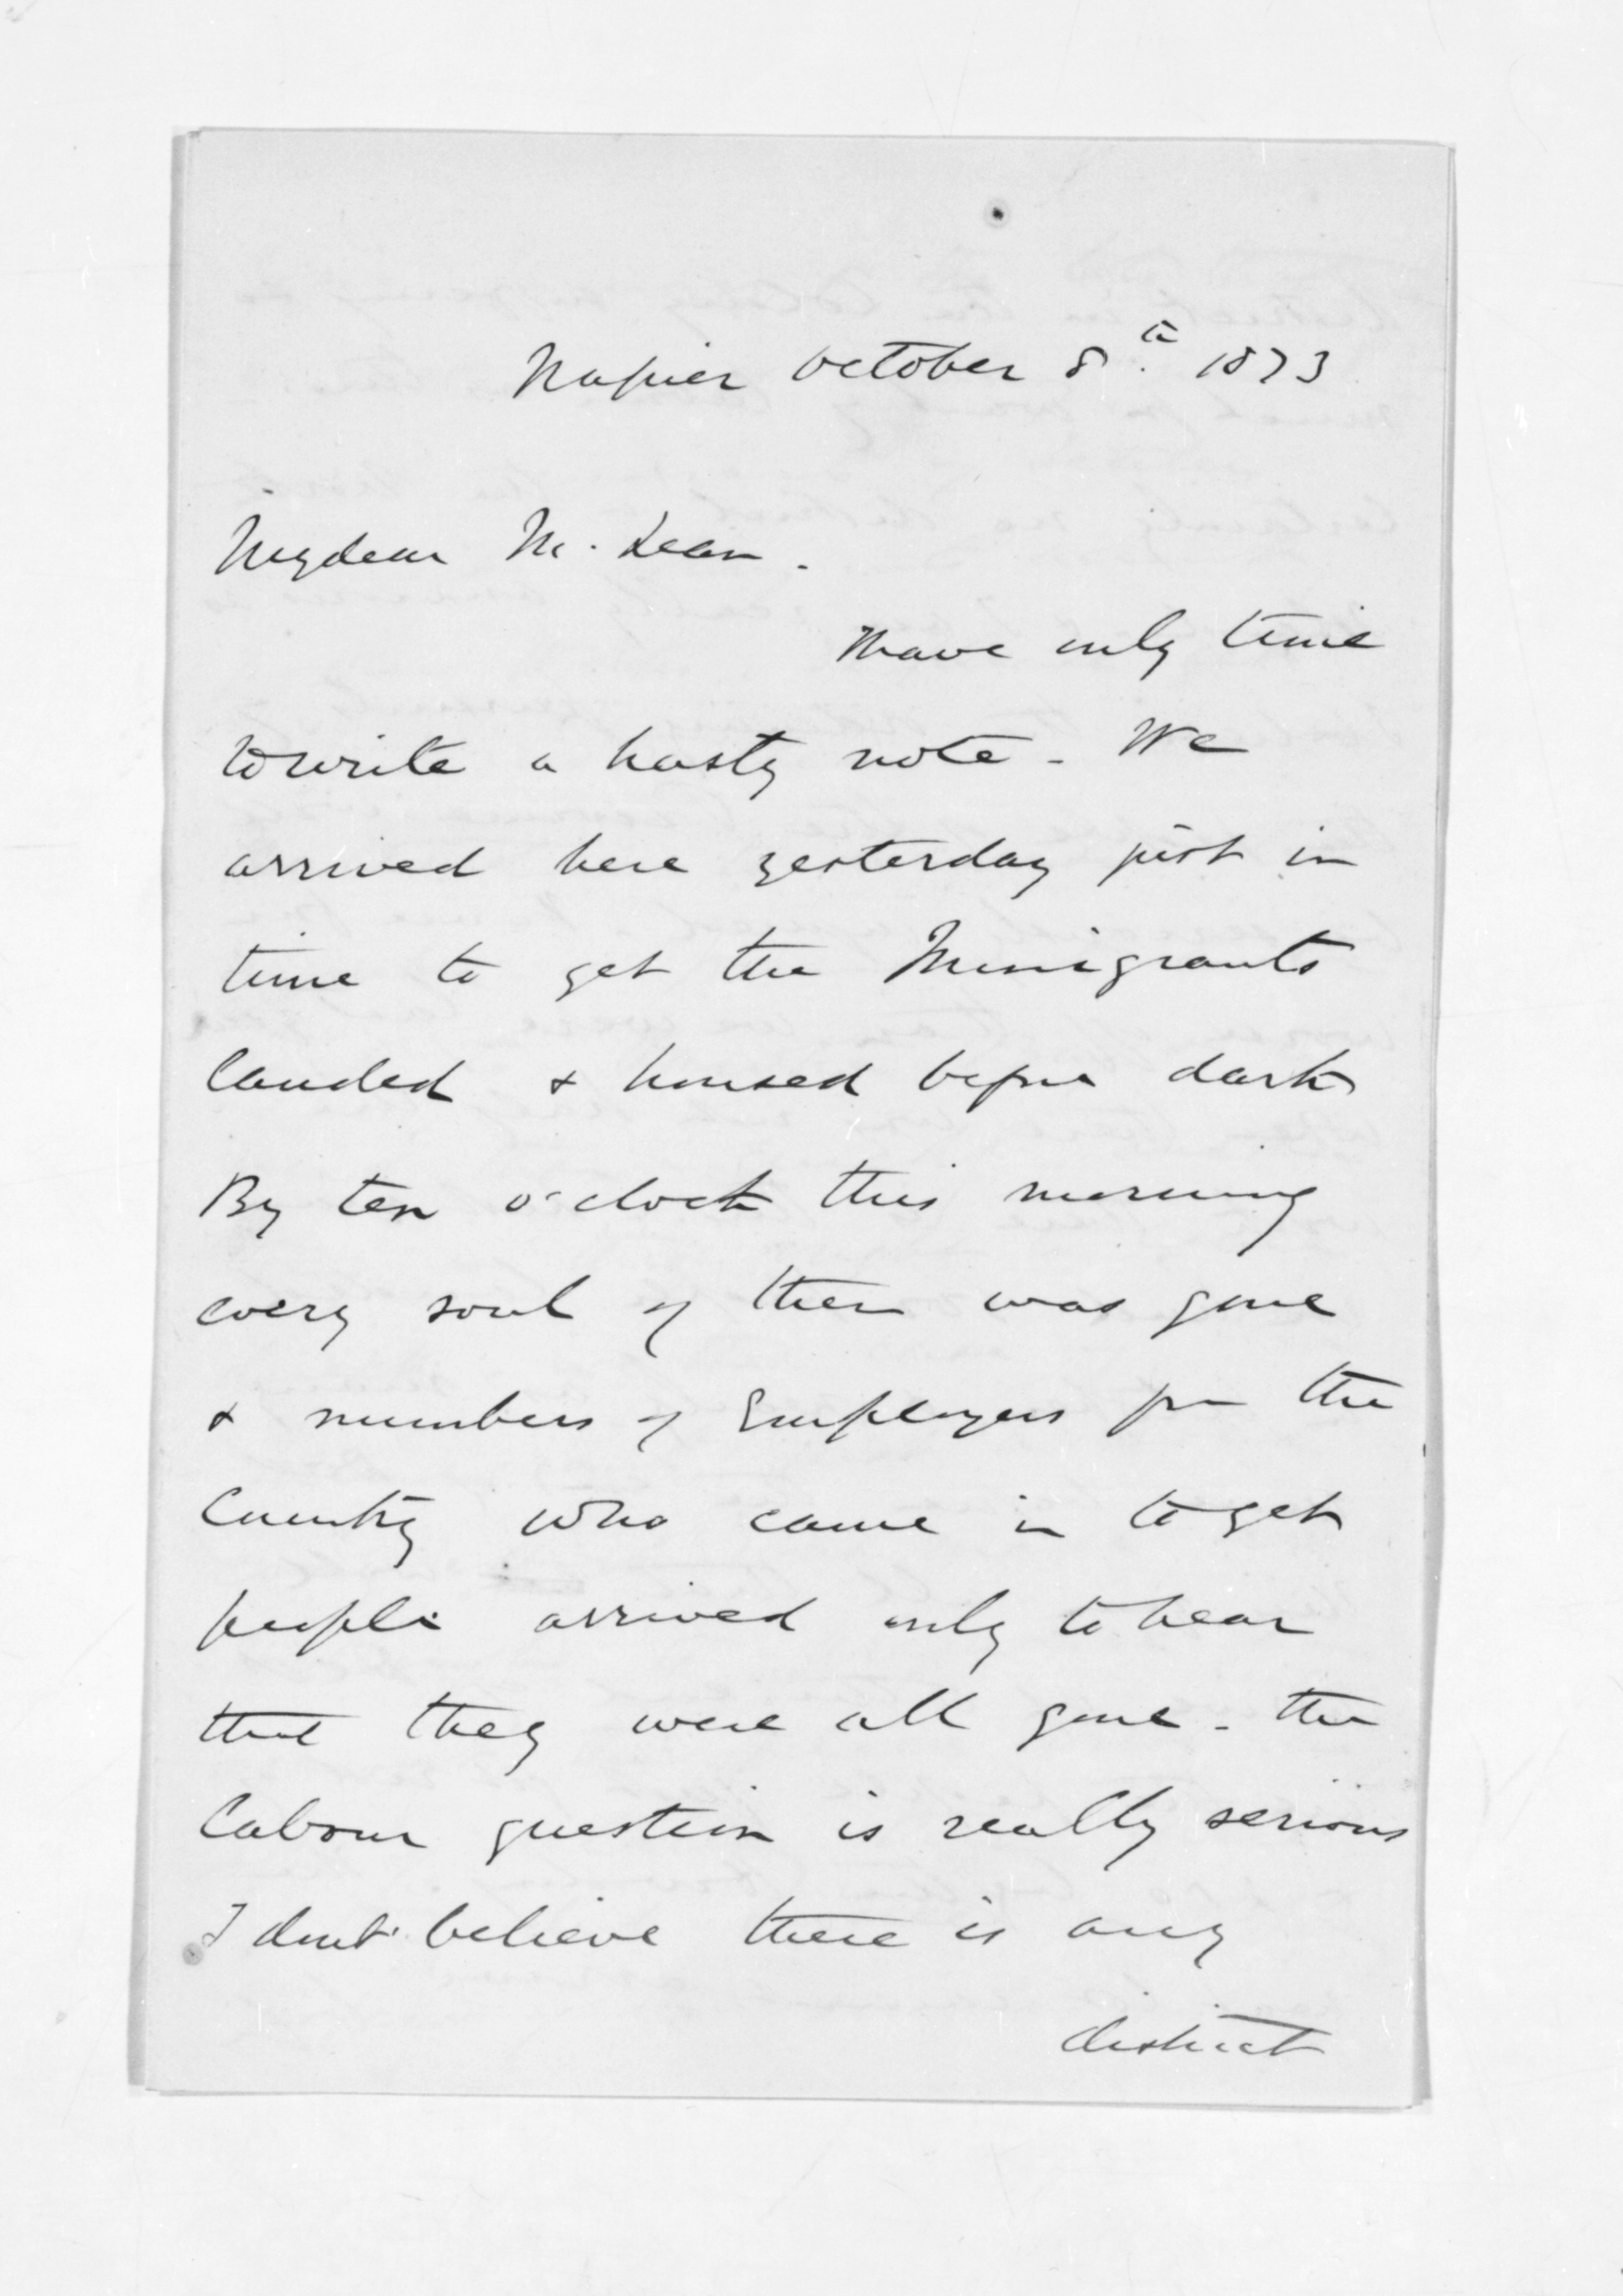 Napier October 8th. 1873
My dear McLean.
I have only time
to write a hasty note - We
arrived here yesterday just in
time to get the Immigrants
landed & housed before dark
By ten o'clock this morning
every soul of them was gone
& numbers of Employers fm the
Country who came in to get
people arrived only to hear
that they were all gone - the
labour question is really serious
I dont believe there is any
district